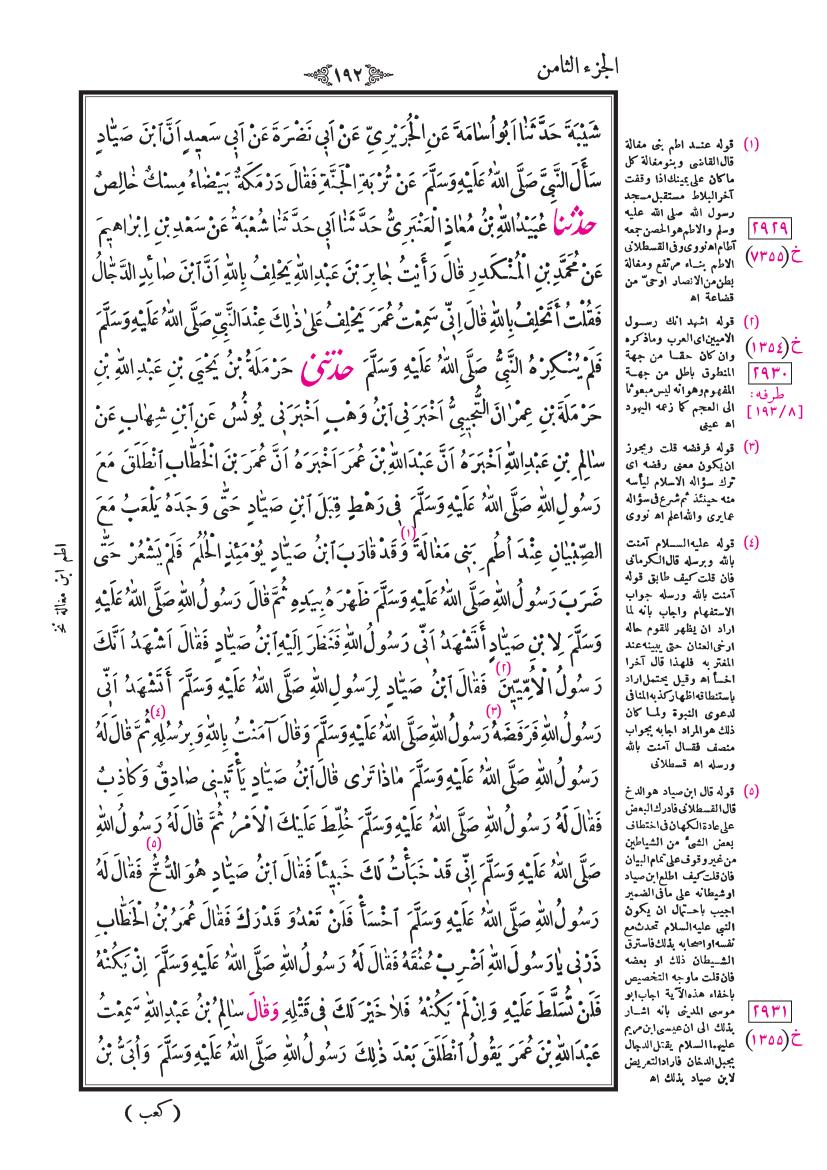 الجزء الثامن
١٩٢
شَيْبَةَ حَدَّثَنَا اَبُواُسَامَةَ عَنِ الْجُرَيْرِىِّ عَنْ اَبِى نَضْرَةَ عَنْ اَبِى سَعِيدٍ اَنَّ ابْنَ صَيَّادٍ
سَأَلَ النَّبِىَّ صَلَّى اللهُ عَلَيْهِ وَسَلَّمَ عَنْ تُرْبَةِ الْجَنَّةِ فَقَالَ دَرْمَكَةٌ بَيْضَاءُ مِسْكٌ خَالِصٌ
حدثنا عُبَيْدُاللهِ بْنُ مُعَاذٍ الْعَنْبَرِىُّ حَدَّثَنَا اَبِى حَدَّثَنَا شُعْبَةُ عَنْ سَعْدِ بْنِ اِبْرَاهِيمَ
عَنْ مُحَمَّدِ بْنِ الْمُنْكَدِرِ قَالَ رَأَيْتُ جَابِرَ بْنَ عَبْدِاللهِ يَحْلِفُ بِاللهِ اَنَّ ابْنَ صَائِدٍ الدَّجَّالُ
فَقُلْتُ أَتَحْلِفُ بِاللهِ قَالَ اِنِّى سَمِعْتُ عُمَرَ يَحْلِفُ عَلىٰ ذٰلِكَ عِنْدَ النَّبِىِّ صَلَّى اللهُ عَلَيْهِ وَسَلَّمَ
فَلَمْ يُنْكِرْهُ النَّبِىُّ صَلَّى اللهُ عَلَيْهِ وَسَلَّمَ حدثنى حَرْمَلَةُ بْنُ يَحْيَى بْنِ عَبْدِاللهِ بْنِ
حَرْمَلَةَ بْنِ عِمْرَانَ التُّجِيبِىُّ اَخْبَرَنِى ابْنُ وَهْبٍ اَخْبَرَنِى يُونُسُ عَنِ ابْنِ شِهَابٍ عَنْ
سَالِمِ بْنِ عَبْدِاللهِ اَخْبَرَهُ اَنَّ عَبْدَاللهِ بْنَ عُمَرَ اَخْبَرَهُ اَنَّ عُمَرَ بْنَ الْخَطَّابِ انْطَلَقَ مَعَ
رَسُولِ اللهِ صَلَّى اللهُ عَلَيْهِ وَسَلَّمَ فِى رَهْطٍ قِبَلَ ابْنِ صَيَّادٍ حَتّٰى وَجَدَهُ يَلْعَبُ مَعَ
الصِّبْيَانِ عِنْدَ اُطُمِ بَنِى مَغَالَةَ (١) وَقَدْ قَارَبَ ابْنُ صَيَّادٍ يَوْمَئِذٍ الْحُلُمَ فَلَمْ يَشْعُرْ حَتّٰى
ضَرَبَ رَسُولُ اللهِ صَلَّى اللهُ عَلَيْهِ وَسَلَّمَ ظَهْرَهُ بِيَدِهِ ثُمَّ قَالَ رَسُولُ اللهِ صَلَّى اللهُ عَلَيْهِ
وَسَلَّمَ لِابْنِ صَيَّادٍ أَتَشْهَدُ اَنِّى رَسُولُ اللهِ فَنَظَرَ اِلَيْهِ ابْنُ صَيَّادٍ فَقَالَ اَشْهَدُ اَنَّكَ
رَسُولُ الْاُمِّيِّينَ (٢) فَقَالَ ابْنُ صَيَّادٍ لِرَسُولِ اللهِ صَلَّى اللهُ عَلَيْهِ وَسَلَّمَ أَتَشْهَدُ اَنِّى
رَسُولُ اللهِ فَرَفَضَهُ (٣) رَسُولُ اللهِ صَلَّى اللهُ عَلَيْهِ وَسَلَّمَ وَقَالَ آمَنْتُ بِاللهِ وَبِرُسُلِهِ (٤) ثُمَّ قَالَ لَهُ
رَسُولُ اللهِ صَلَّى اللهُ عَلَيْهِ وَسَلَّمَ مَاذَا تَرَى قَالَ ابْنُ صَيَّادٍ يَأْتِينِى صَادِقٌ وَكَاذِبٌ
فَقَالَ لَهُ رَسُولُ اللهِ صَلَّى اللهُ عَلَيْهِ وَسَلَّمَ خُلِّطَ عَلَيْكَ الْاَمْرُ ثُمَّ قَالَ لَهُ رَسُولُ اللهِ
صَلَّى اللهُ عَلَيْهِ وَسَلَّمَ اِنِّى قَدْ خَبَأْتُ لَكَ خَبِيئًا فَقَالَ ابْنُ صَيَّادٍ هُوَ الدُّخُّ (٥) فَقَالَ لَهُ
رَسُولُ اللهِ صَلَّى اللهُ عَلَيْهِ وَسَلَّمَ اخْسَأْ فَلَنْ تَعْدُوَ قَدْرَكَ فَقَالَ عُمَرُ بْنُ الْخَطَّابِ
ذَرْنِى يَا رَسُولَ اللهِ اَضْرِبْ عُنُقَهُ فَقَالَ لَهُ رَسُولُ اللهِ صَلَّى اللهُ عَلَيْهِ وَسَلَّمَ اِنْ يَكُنْهُ
فَلَنْ تُسَلَّطَ عَلَيْهِ وَاِنْ لَمْ يَكُنْهُ فَلَا خَيْرَ لَكَ فِى قَتْلِهِ وَقَالَ سَالِمُ بْنُ عَبْدِاللهِ سَمِعْتُ
عَبْدَاللهِ بْنَ عُمَرَ يَقُولُ انْطَلَقَ بَعْدَ ذٰلِكَ رَسُولُ اللهِ صَلَّى اللهُ عَلَيْهِ وَسَلَّمَ وَاُبَىُّ بْنُ
( كعب )
اطم ابن مغالة نخ
(١) قوله عند اطم بنى مغالة
قال القاضى وبنو مغالة كل
ما كان على يمينك اذا وقفت
آخر البلاط مستقبل مسجد
رسول الله صلى الله عليه
وسلم والاطم هو الحصن جمعه
آطام اه نووى وفى القسطلانى
الاطم بناء مرتفع ومغالة
بطن من الانصار اوحىّ من
قضاعة اه
(٢) قوله اشهد انك رسول
الاميين اى العرب وما ذكره
وان كان حقا من جهة
المنطوق باطل من جهة
المفهوم وهو انه ليس مبعوثا
الى العجم كما زعمه اليهود
اه عينى
(٣) قوله فرفضه قلت ويجوز
ان يكون معنى رفضه اى
ترك سؤاله الاسلام ليأسه
منه حينئذ ثم شرع فى سؤاله
عما يرى والله اعلم اه نووى
(٤) قوله عليه السلام آمنت
بالله وبرسله قال الكرمانى
فان قلت كيف طابق قوله
آمنت بالله ورسله جواب
الاستفهام واجاب بانه لما
اراد ان يظهر للقوم حاله
ارخى العنان حتى يبينه عند
المغتر به فلهذا قال آخرا
اخسأ اه وقيل يحتمل اراد
باستنطاقه اظهار كذبه المنافى
لدعوى النبوة ولما كان
ذلك هو المراد اجابه بجواب
منصف فقال آمنت بالله
ورسله اه قسطلانى
(٥) قوله قال ابن صياد هو الدخ
قال القسطلانى فادرك البعض
على عادة الكهان فى اختطاف
بعض الشىء من الشياطين
من غير وقوف على تمام البيان
فان قلت كيف اطلع ابن صياد
او شيطانه على ما فى الضمير
اجيب باحتمال ان يكون
النبى عليه السلام تحدث مع
نفسه او اصحابه بذلك فاسترق
الشيطان ذلك او بعضه
فان قلت ما وجه التخصيص
باخفاء هذه الآية اجاب ابو
موسى المدينى بانه اشار
بذلك الى ان عيسى ابن مريم
عليهما السلام يقتل الدجال
بجبل الدخان فاراد التعريض
لابن صياد بذلك اه
٢٩٢٩
خ (٧٣٥٥)
خ (١٣٥٤)
٢٩٣٠
طرفه:
[١٩٣/٨]
٢٩٣١
خ (١٣٥٥)